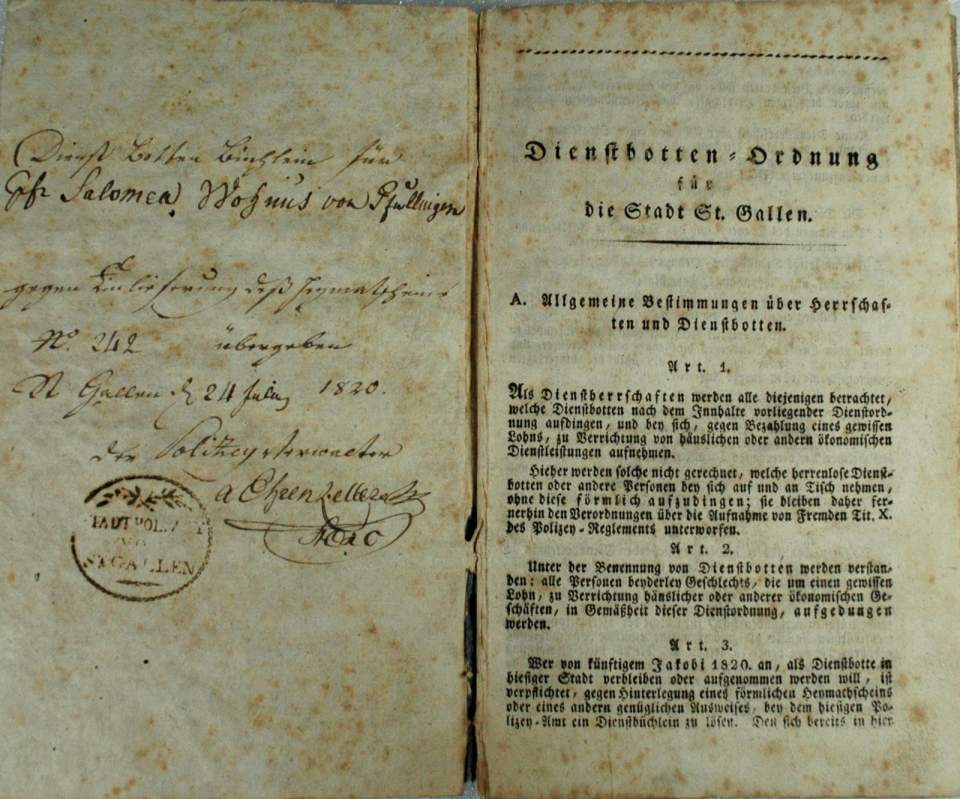 Dienst Botten Büchlein für
Salomea Wohnus von Pfullingen
gegen Einlieferung deß Heymatscheins
No. 242 übergeben
St Gallen d 24 July 1820.
Der Polizeyverwalter
STGALLEN
Dienstbotten-Ordnung
für
die Stadt St. Gallen.
A. Allgemeine Bestimmungen über Herrschaf-
ten und Dienstbotten.
Art. 1.
Als Dienstherrschaften werden alle diejenigen betrachtet,
welche Dienstbotten nach dem Innhalte vorliegender Dienstord-
nung aufdingen, und bey sich, gegen Bezahlung eines gewissen
Lohns, zu Verrichtung von häuslichen oder andern ökonomischen
Dienstleistungen aufnehmen.
Hieber werden solche nicht gerechnet, welche herrenlose Dienst-
botten oder andere Personen bey sich auf und an Tisch nehmen,
ohne diese förmlich aufzudingen; sie bleiben daher fer-
nerhin den Verordnungen über die Aufnahme von Fremden Tit. X.
des Polizey-Reglements unterworfen.
Art. 2.
Unter der Benennung von Dienstbotten werden verstan-
den: alle Personen beyderley Geschlechts, die um einen gewissen
Lohn, zu Verrichtung häuslicher oder anderer ökonomischen Ge-
schäften, in Gemäßheit dieser Dienstordnung, aufgedungen
werden.
Art. 3.
Wer von künftigem Jakobi 1820. an, als Dienstbotte in
hiesiger Stadt verbleiben oder aufgenommen werden will, ist
verpflichtet, gegen Hinterlegung eines förmlichen Heymathscheins
oder eines andern genüglichen Ausweises, bey dem hiesigen Po-
lizey-Amt ein Dienstbüchlein zu lösen. Den sich bereits in hier